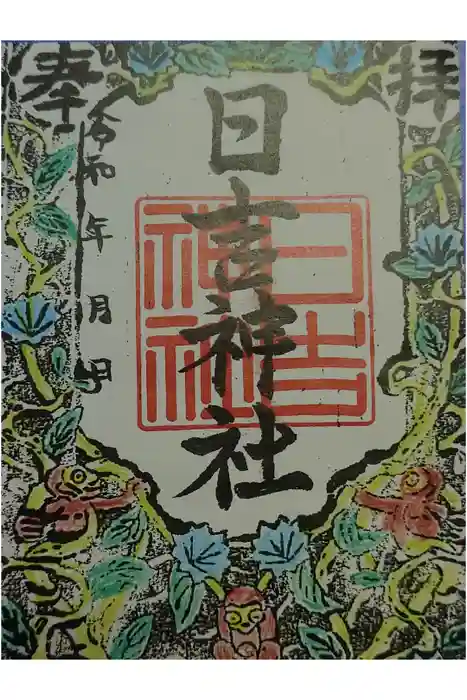 奉拝
日吉神社
日吉
神社
令和 年 月 日